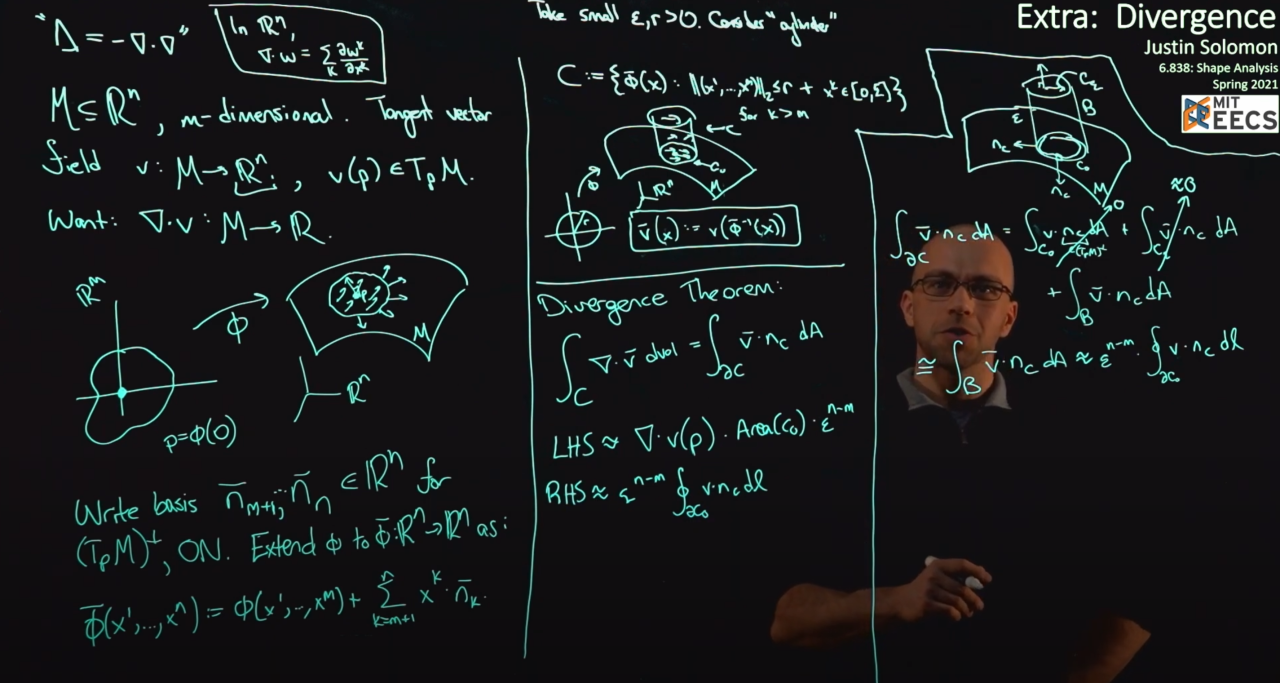 Extra: Divergence
Justin Solomon
6.838: Shape Analysis
Spring 2021
MIT
EECS
"Δ = -∇·∇"
In ℝⁿ,
∇·w = Σ_k ∂wᵏ/∂xᵏ
M ⊆ ℝⁿ, m-dimensional. Tangent vector
field v: M → ℝⁿ, v(p) ∈ T_pM.
Want: ∇·v : M → ℝ.
ℝᵐ
ϕ
p
M
ℝⁿ
p=ϕ(0)
Write basis n̄_{m+1},..., n̄_n ∈ ℝⁿ for
(T_pM)^⊥, ON. Extend ϕ to ϕ̄: ℝⁿ→ℝⁿ as:
ϕ̄(x¹,...,xⁿ) := ϕ(x¹,..,xᵐ) + Σ_{k=m+1}^n xᵏ · n̄_k.
Take small ε,r>0. Consider "cylinder"
C := {ϕ̄(x) : ‖(x¹,...,xᵐ)‖₂ ≤ r + xᵏ ∈ [0,ε]}
for k>m
C
C₀
M
ϕ
ℝⁿ
v̄(x) := v(ϕ̄⁻¹(x))
Divergence Theorem:
∫_C ∇·v̄ dvol = ∫_{∂C} v̄·n_C dA
LHS ≈ ∇·v(p) · Area(C₀) · ε^{n-m}
RHS ≈ ε^{n-m} ∮_{∂C₀} v·n_C dl
C_ε
B
ε
n_C
C₀
n_C
M
0
≈0
∫_{∂C} v̄·n_C dA = ∫_{C₀} v·n_C dA + ∫_{C_ε} v̄·n_C dA
∈(T_pM)^⊥
+ ∫_B v̄·n_C dA
≅ ∫_B v̄·n_C dA ≈ ε^{n-m} · ∮_{∂C₀} v·n_C dl